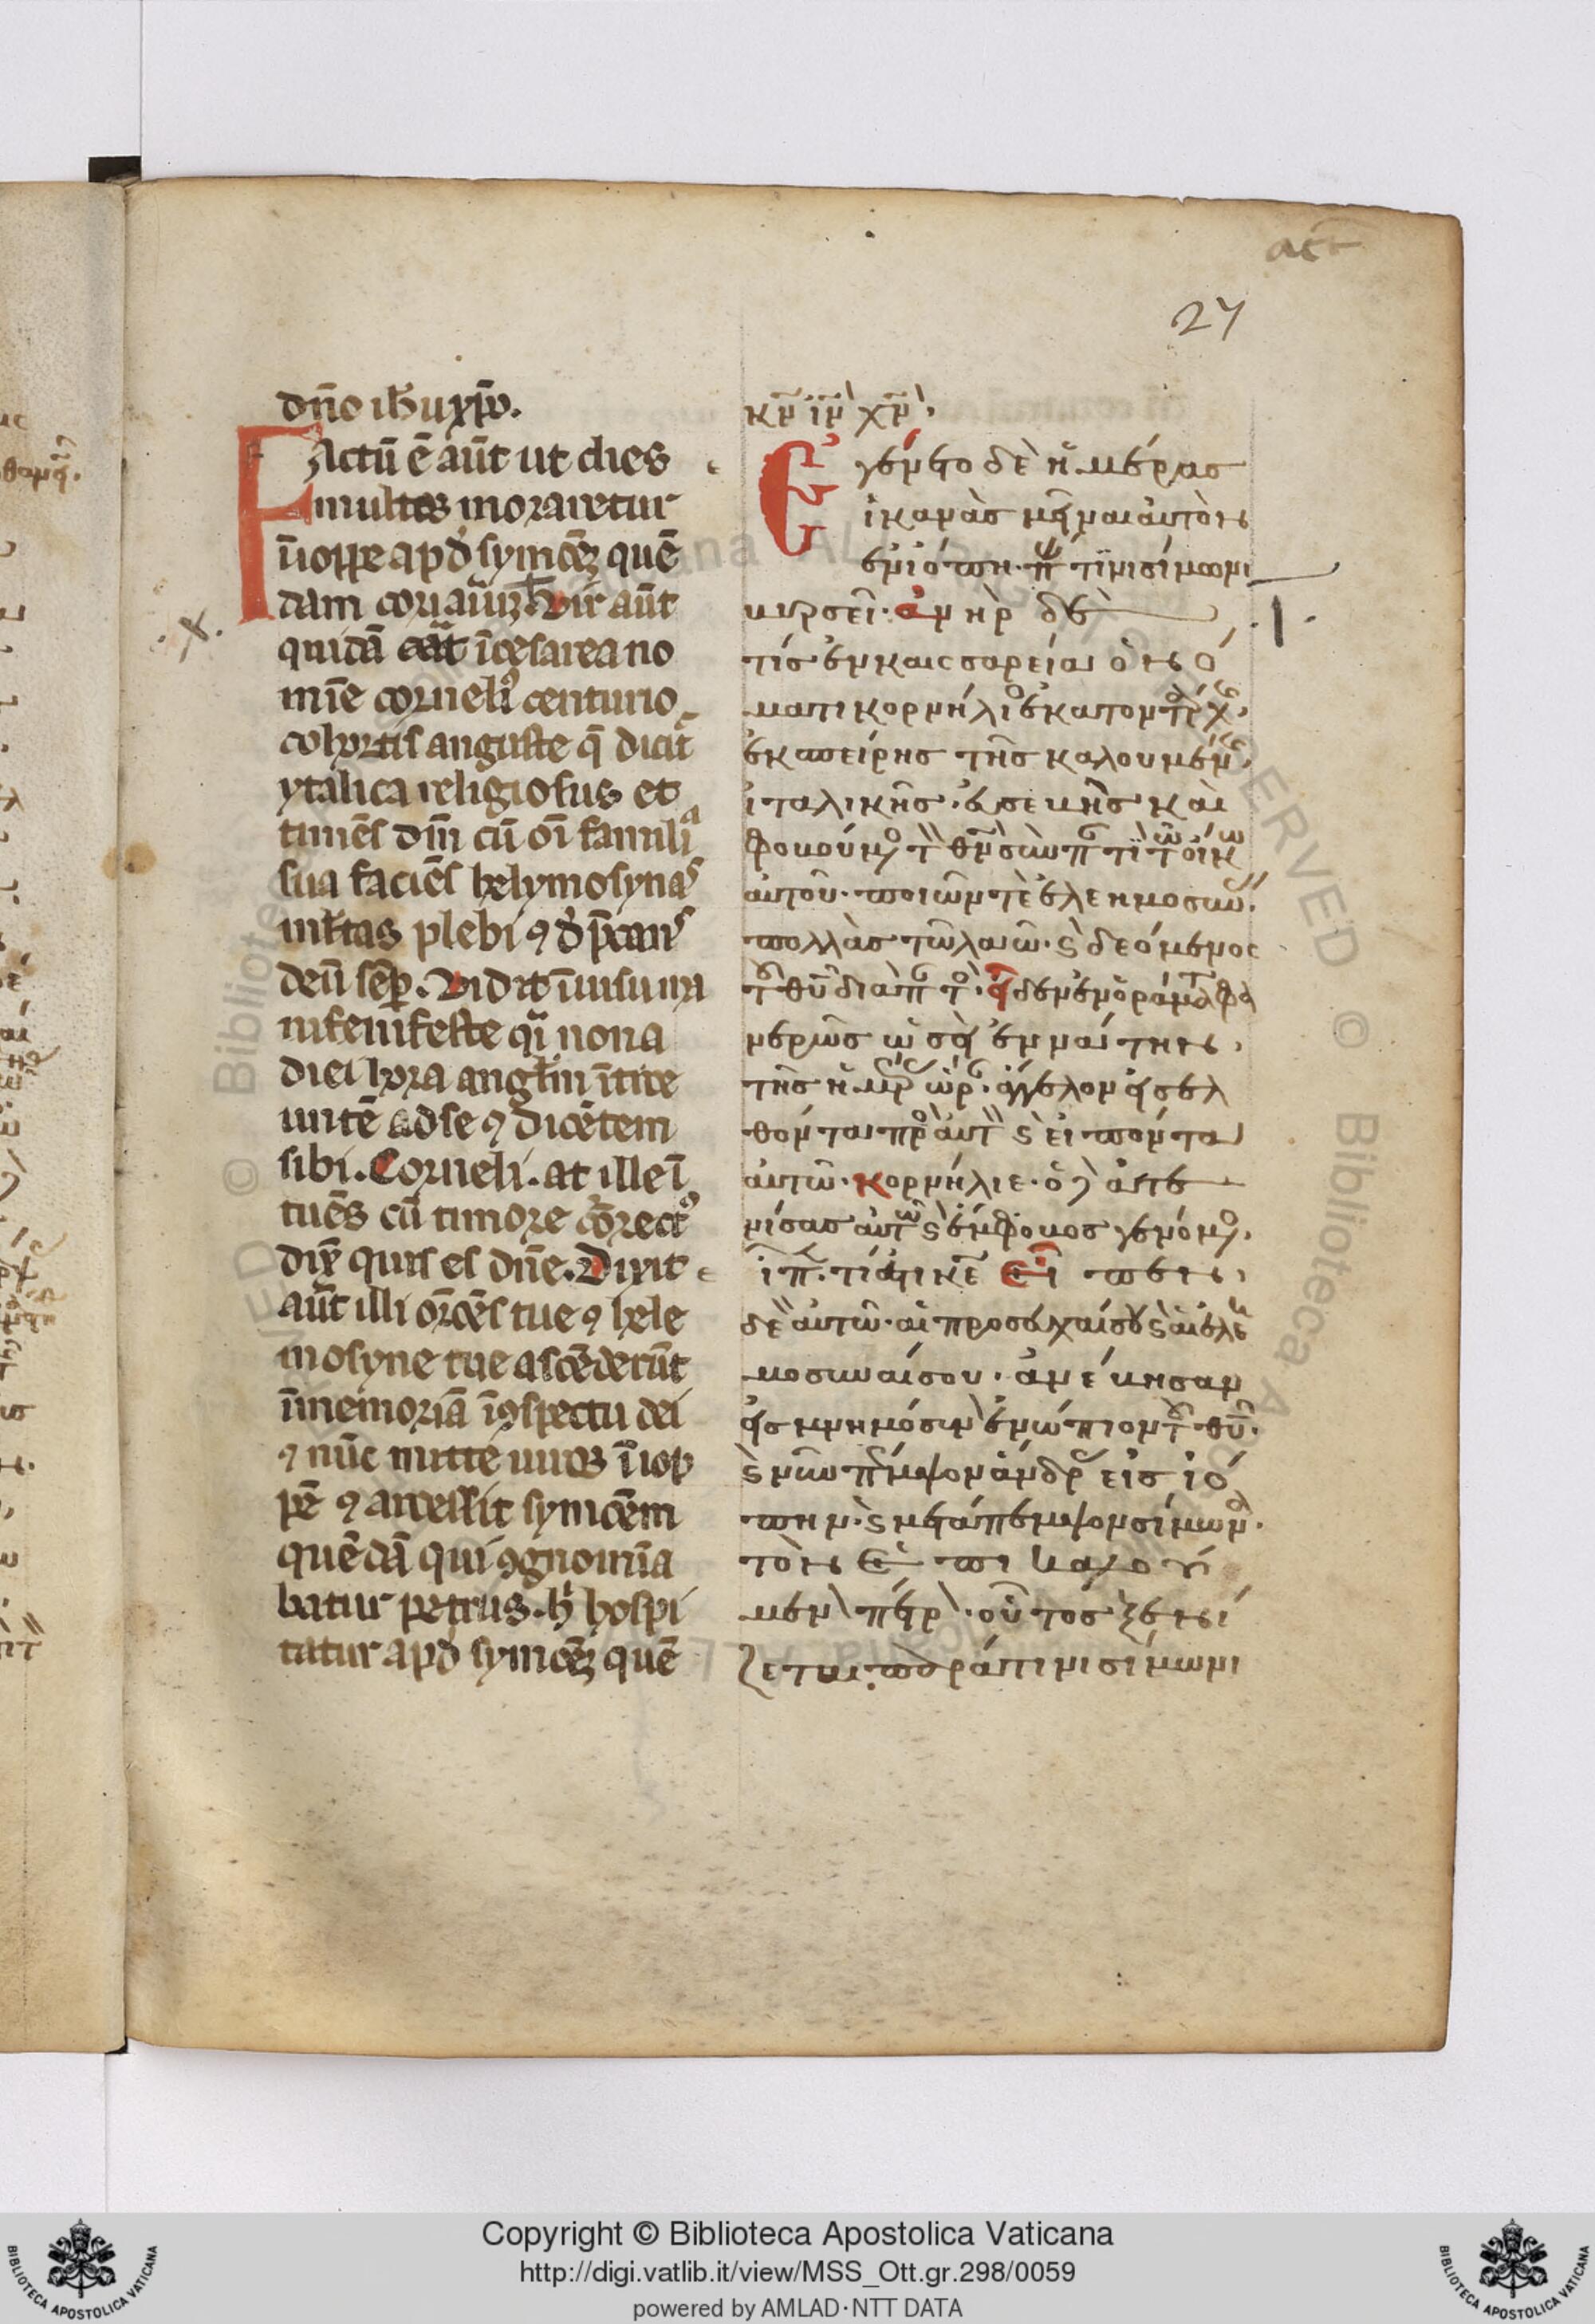 act
27
dn̄o ih̄u xp̄o.
Factū ē aūt ut dies
multos moraretur
ī ioppe apd̄ symōeȝ quē
dam coriariuȝ. Vir aūt
.x. quidā erat ī cesarea no
mīe corneliꝰ centurio
cohortis auguste q̄ dicit᷑
ytalica religiosus et
timēs dm̄ cū oī famili
sua faciēs helymosynas
ml̄tas plebi ꝯ dp̄cans
deū sēp. Vidit ī uisu ma
nifeste q̄i nona
diei hora angl̄m ītro
untē ad se ꝯ dicētem
sibi. Corneli. at ille ī
tuēs eū timore correptꝰ
dix̄ quis es dn̄e. Dixit
aūt illi or̄ōes tue ꝯ hele
mosyne tue ascēderūt
ī memoriā ī ꝯspectu dei
ꝯ nūc mitte uiros ī iop
pē ꝯ arcessit symōem
quēdā qui ꝯgnomīa
batur petrus. h̄ hospi
tatur apd̄ symōeȝ quē
κν̄ ιν̄ χν̄.
Ἐγένετο δὲ ἡμέρας
ἱκανὰς μεῖναι αὐτὸν
ἐν ἰόππη. π τινι σίμωνι
βυρσεῖ. ἀνὴρ δὲ .1.
τίς ἐν καισαρείαι ὀνό
ματι κορνήλιος ἑκατοντάρχ.
ἐκ σπείρης τῆς καλουμέν.
ἰταλικῆς. εὐσεβὴς καὶ
φοβούμ τ θν̄ σὺν π τι τ οἴκ
αὐτοῦ. ποιῶν τὲ ἐλεημοσύν.
πολλὰς τῶ λαῶ. ϛ δεόμενος
τ θῡ διὰ π τ. εἶδεν ἐν ὁράματι φα
νερῶς ὡσεὶ ἐννάτην
τῆς ἡμρ ὥρ. ἄγγελον εἰσελ
θόνται πρ αὐτ ϛ εἰπόντα
αὐτῶ. κορνήλιε. ὁ δ ἀτε
νίσας αὐτ ϛ ἔμφοβος γενόμ.
εἶπ. τί ἐστι κε̄ Εἶ πεν
δὲ αὐτῶ. αἱ προσευχαί σου ϛ αἱ ἐλεη
μοσύναι σου. ἀνέβησαν
εἰς μνημόσυν ἐνώπιον τ θῡ.
ϛ νῦν πέμψον ἄνδρ εἰς ἰό
πην. ϛ μετάπεμψον σίμων.
τὸν ἐ πι καλού
μεν πέτρ. οὗτος ξενί
ζεται παρά τινι σίμωνι
Copyright © Biblioteca Apostolica Vaticana
http://digi.vatlib.it/view/MSS_Ott.gr.298/0059
powered by AMLAD·NTT DATA